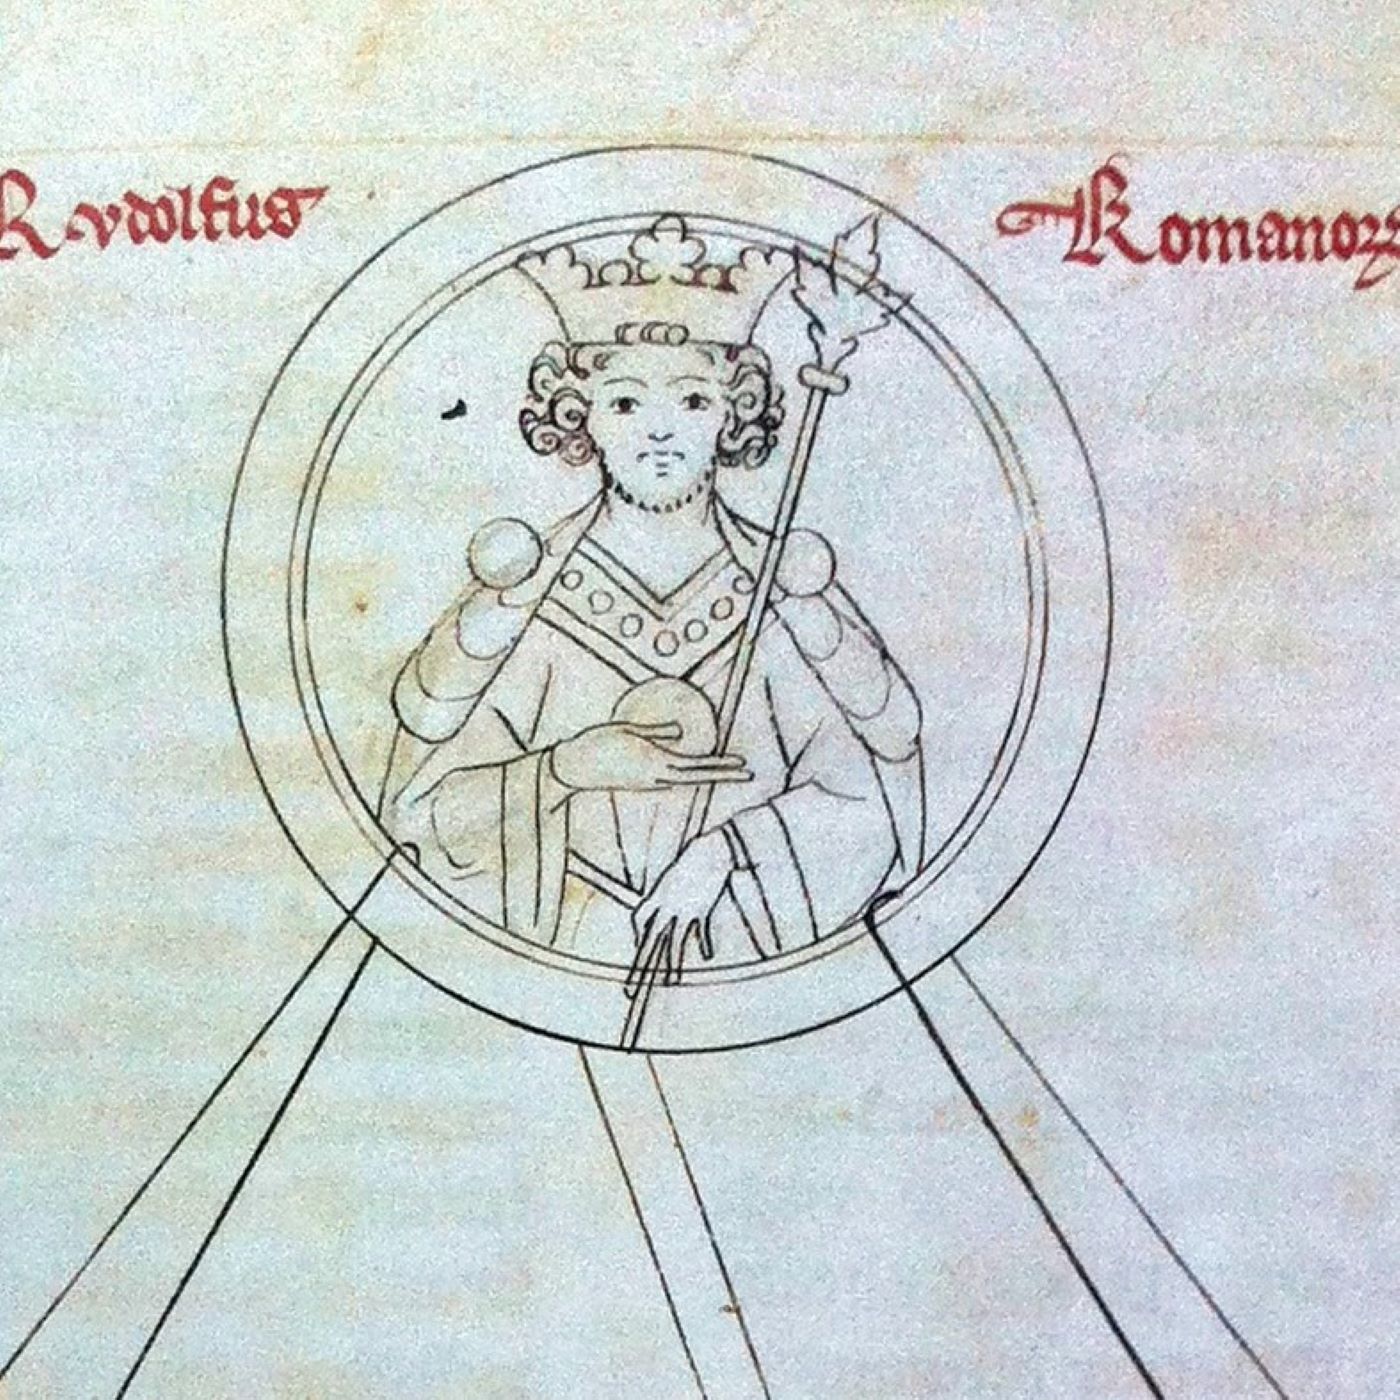 Rudolfus Romanorꝝ